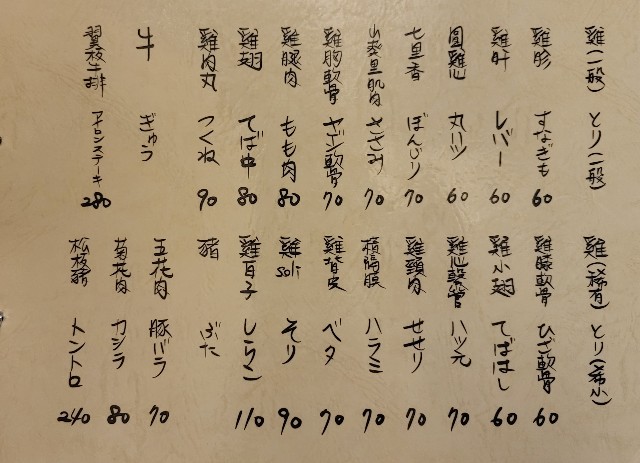 雞(一般) とり(一般)
雞胗 すなぎも 60
雞肝 レバー 60
圓雞心 丸ハツ 60
七里香 ぼんじり 70
山葵里肌肉 ささみ 70
雞胸軟骨 ヤゲン軟骨 70
雞腿肉 もも肉 80
雞翅 てば中 80
雞肉丸 つくね 90
牛 ぎゅう
翼板牛排 アイロンステーキ 280
雞(稀有) とり(希少)
雞膝軟骨 ひざ軟骨 60
雞小翅 てばはし 60
雞心堅管 ハツ元 70
雞頸肉 せせり 70
橫隔膜 ハラミ 70
雞背皮 ベタ 70
雞soli そり 90
雞白子 しらこ 110
豬 ぶた
五花肉 豚バラ 70
菊花肉 カシラ 80
松板豬 トントロ 240